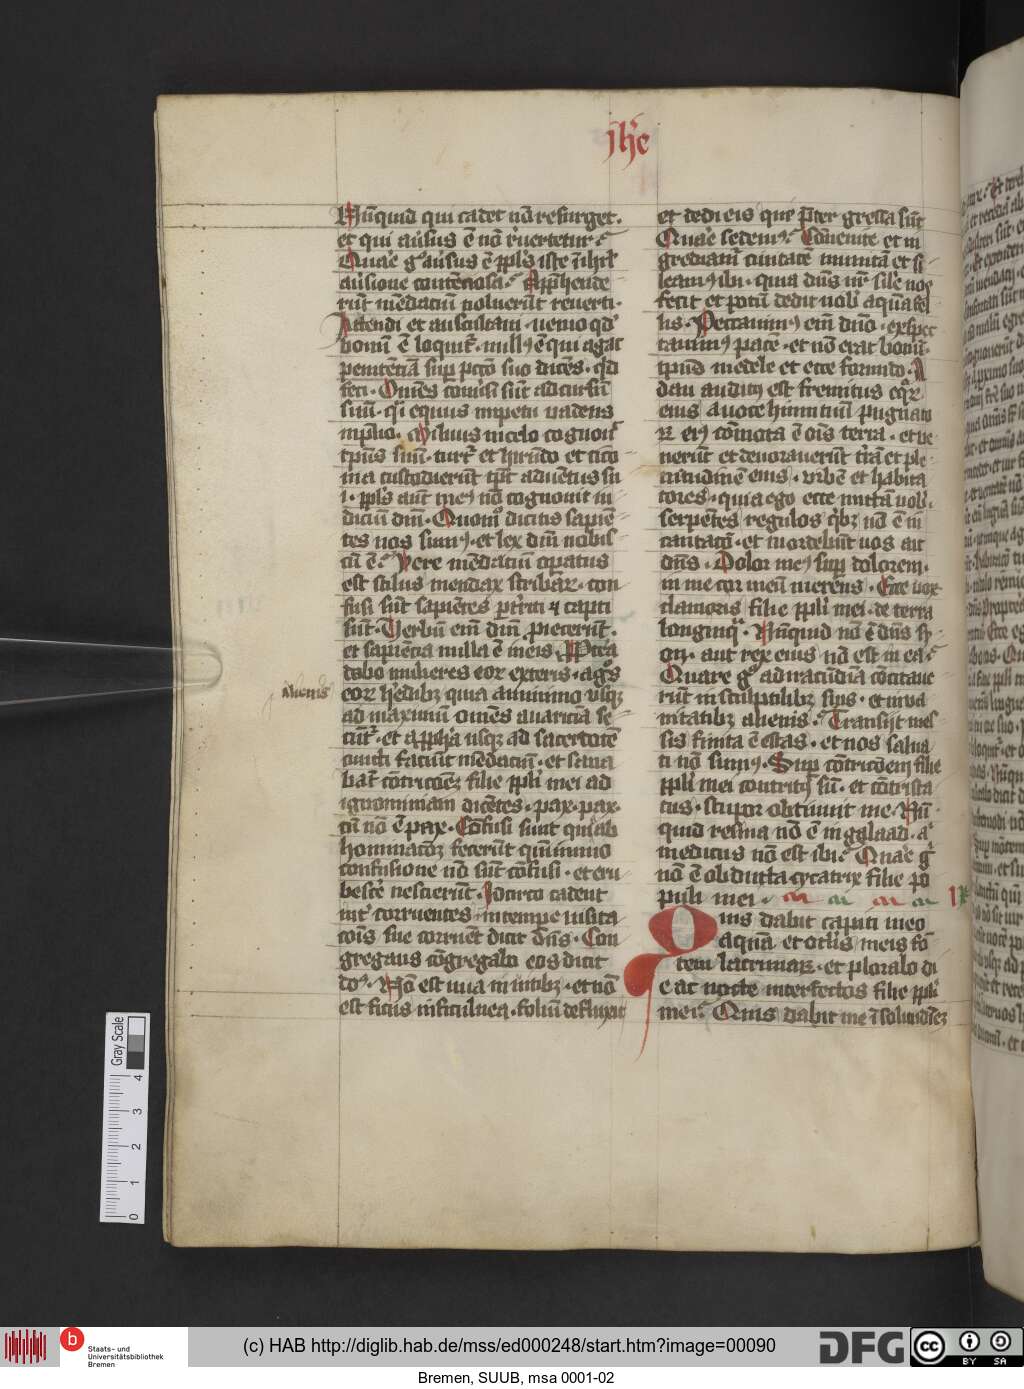 jh'e
Nūquid qui cadet nō resurget.
et qui au'sus ē nō ru'ertetur
Qua'e g° au'sus ē ppl's iste ī ihrl'm
au'sione contētiosa. Apphende
rūt mēdaciūm noluerūt reuerti.
Attendi et auscultaui. nemo qd'
bonū ē loquit'. null9 ē qui agat
penitētiā sup pctō suo dicēs. qd
feci. Omēs conu'si sūt ad cursū
suū. q'si equus impetu uadens
in plio. Miluus in celo cognou'
tpūs suū. turt' et hirūdo et cico
nia custodierūt tps aduētus su
i. ppl's aūt me9 nō cognouit iu
diciū dni. Quomo dicitis sapiē
tes nos sum9. et lex dni nobis
cū ē. Vere mēdaciū opatus
est stilus mendax scribar. con
fusi sūt sapiētes pterriti et capti
sūt. Verbū em dni proiecerūt.
et sapiētia nulla ē in eis. Ppt'ea
dabo mulieres eor exteris. agos
alienis
eor h'edibz quia a minimo usqz
ad maximū omēs auaritiā se
cūt'. et a ppha usqz ad sacerdotē
cuncti faciūt mēdaciū. et sana
bāt contricoēz filie ppli mei ad
ignominiam dicētes. pax. pax.
cū nō ē pax. Cōfusi sunt quia ab
hominacōz fecerūt quinimmo
confusione nō sūt cōfusi. et eru
bescē nescierūt. Jdcirco cadent
int' corruentes. in tempe uisita
cōis sue corruēt dicit dns. Con
gregans cōgregabo eos dicit
do'. Nō est uua in uitibz. et nō
est ficus in ficulnea. foliū defluxit
et dedi eis que pter gressa sūt
Qua'e sedem9. Cōuenite et in
grediam' ciuitatē munitā et si
leam9 ibi. quia dns nr sile' nos
fecit et potū dedit nobis aquā fel
lis. Peccauim9 em dno. exspec
tauim9 pace. et nō erat bonū.
tpus medele et ecce formido. A
dan auditus est fremitus eqr'
eius a uoce hinnituū pugnato
rz ei9 cōmota ē ois terra. et ue
nerūt et deuorauerūt t'rā et ple
nitudinē eius. urbē et habita
tores. quia ego ecce mittā uob'.
serpētes regulos qbz nō ē in
cantaco. et mordebūt uos ait
dns. Dolor me9 sup dolorem.
in me cor meū merens. Ecce uox
clamoris filie ppli mei. de terra
longinq'. Nūquid nō ē dns sy
on. aut rex eius nō est in ea.
Quare g° ad iracūdiā cōcitaue
rūt in sculptilibz suis. et in ua
nitatibz alienis. Transijt mes
sis finita ē estas. et nos salua
ti nō sum9. Sup cōtricōem filie
ppli mei contrit9 sū. et cōtrista
tus. stupor obtinuit me. Nū
quid resina nō ē in galaad. a'
medicus nō est ibi. Qua'e g°
nō ē obducta cycatrix filie po
puli mei.
Quis dabit capiti meo
aquā et oclis meis fō
tem lacrimaz. et plorabo di
e ac nocte interfectos filie ppli
mei. Quis dabit me ī solitudīez
Gray Scale
0 1 2 3 4
Staats- und
Universitätsbibliothek
Bremen
(c) HAB http://diglib.hab.de/mss/ed000248/start.htm?image=00090
DFG
cc BY SA
Bremen, SUUB, msa 0001-02